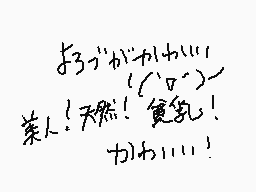 よろづがかわいい
!(´▽`)ー
美人!天然!貧乳!
かわいい!